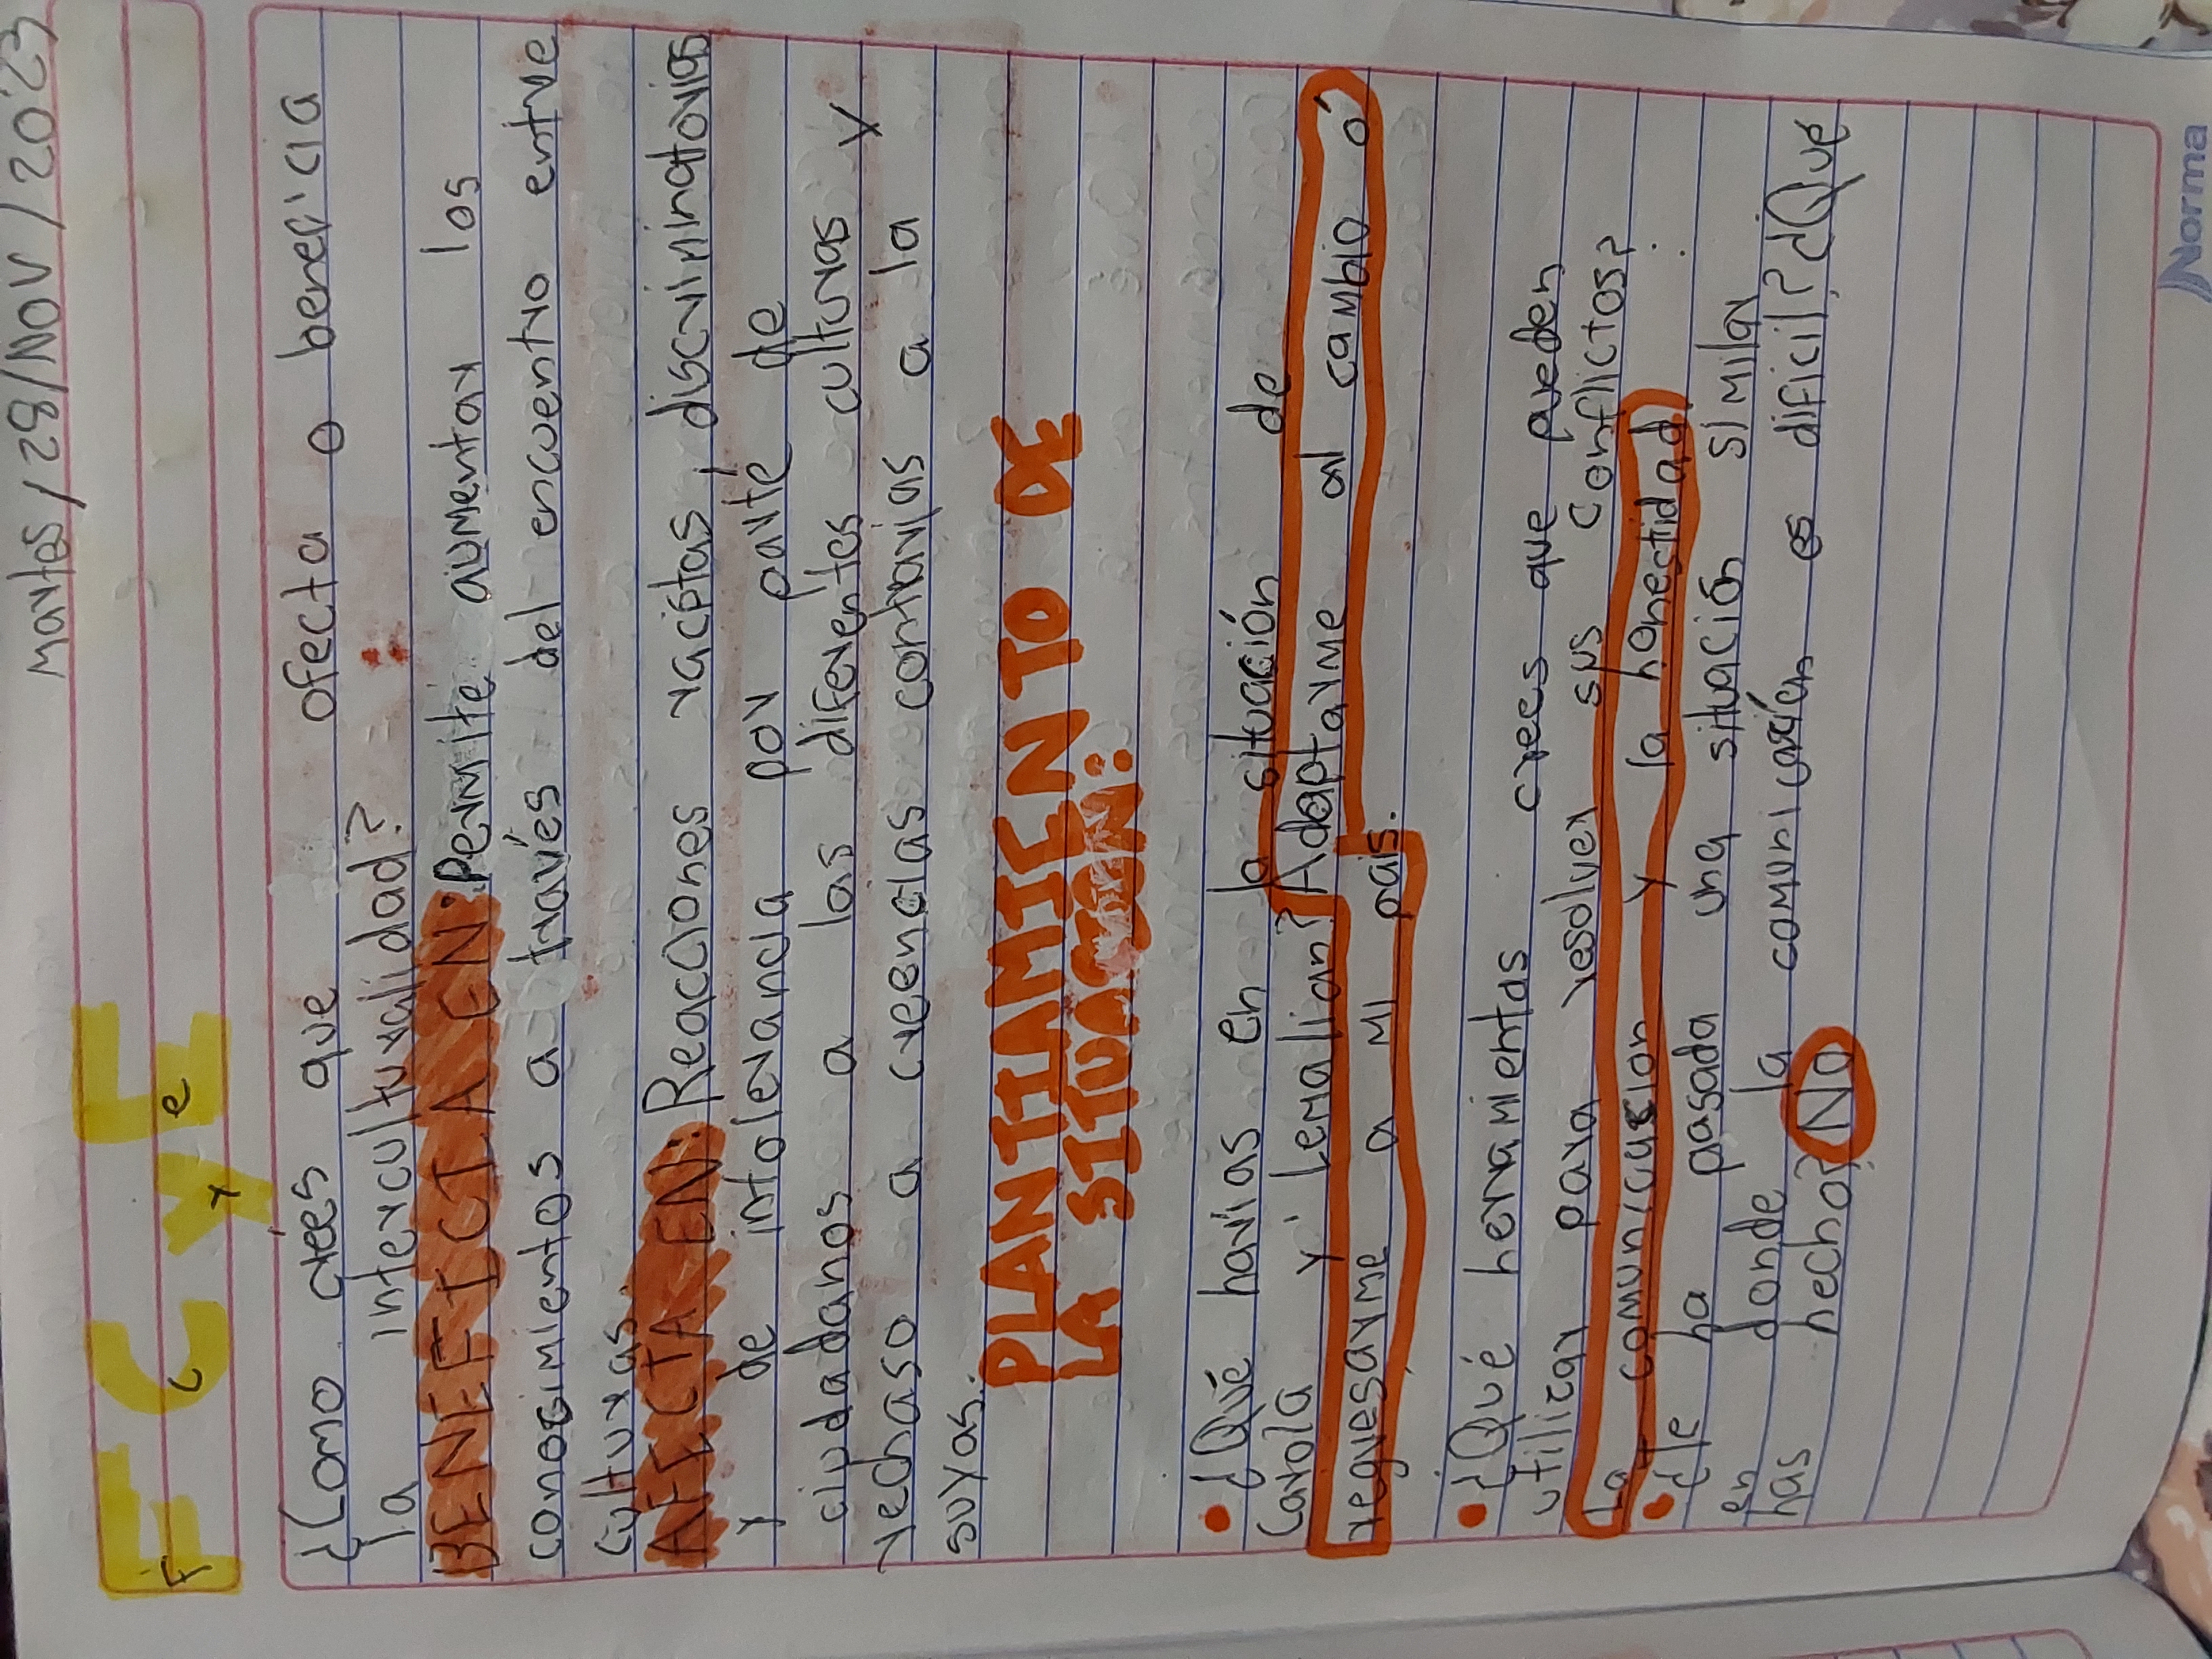 Martes/28/Nov/2023
F C Y E
F c y e
¿Como crees que afecta o beneficia
la interculturalidad?
BENEFICIA EN: Permite aumentar los
conocimientos a través del encuentro entre
culturas.
AFECTA EN: Reacciones racistas, discriminatorias
y de intolerancia por parte de
ciudadanos a las diferentes culturas y
rechaso a creencias contrarias a la
suyas.
PLANTIAMIENTO DE
LA SITUACIÓN:
• ¿Qué harias en la situación de
Carola y lemalian? Adaptarme al cambio ó
regresarme a mi pais.
• ¿Qué herramientas crees que pueden
utilizar para resolver sus conflictos?
La comunicasion y la honestidad
• ¿Te ha pasada una situación similar
en donde la comunicación es dificil? ¿Que
has hecho? No
Norma